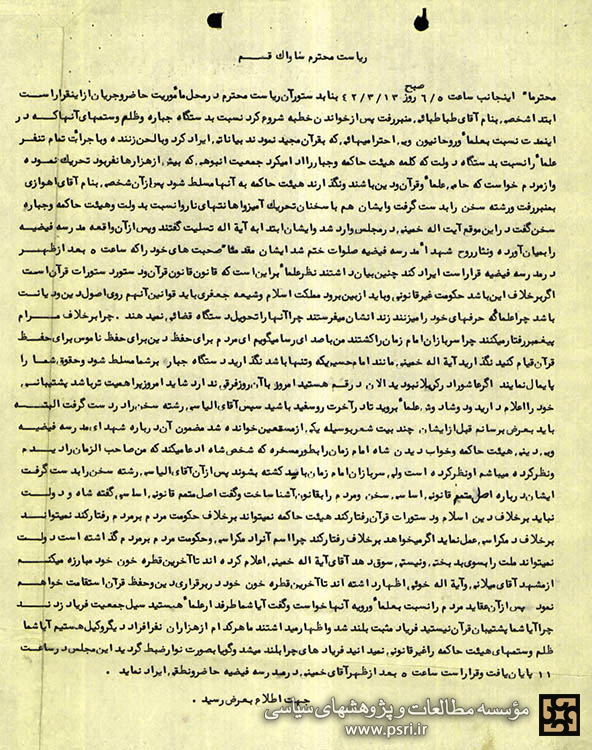 ریاست محترم ساواک قسم
صبح
محترما" اینجانب ساعت ۶/۵ روز ۴۲/۳/۱۳ بنا بدستور آن ریاست محترم در محل مأموریت حاضر و جریان از اینقرار است
ابتدا شخصی بنام آقای طباطبائی منبر رفت پس از خواندن خطبه شروع کرد نسبت بدستگاه جباره و ظلم و ستمهای آنها که در
اینمدت نسبت بعلماء و روحانیون و بی احترامیهائی که بقرآن مجید نمودند بیاناتی ایراد کرد و بالحن زننده و با جرأت تمام تنفر
علماء را نسبت بدستگاه دولت که کلمه هیئت حاکمه و جبار را ادا میکرد جمعیت انبوهی که بیش از هزارها نفر بود تحریک نموده
و از مردم خواست که حامی علماء و قرآن و دین باشند و نگذارند هیئت حاکمه به آنها مسلط شود پس از آن شخصی بنام آقای اهوازی
بمنبر رفت و رشته سخن را بدست گرفت و ایشان هم با سخنان تحریک آمیز و اهانتهای ناروا نسبت به دولت وهیئت حاکمه و جباره
سخن گفت در این موقع آیت اله خمینی در مجلس وارد شد و ایشان ابتدا به آیة اله تسلیت گفتند و پس از آن واقعه مدرسه فیضیه
را بمیان آورده و نثار روح شهداء مدرسه فیضیه صلوات ختم شد ایشان مقدمتا" صحبت های خود را که ساعت ۵ بعد از ظهر
در مدرسه فیضیه قرار است ایراد کند چنین بیان داشتند نظر علماء بر این است که قانون قانون قرآن و دستور دستورات قرآن است
اگر برخلاف این باشد حکومت غیر قانونی و باید از بین برود مملکت اسلام و شیعه جعفری باید قوانین آنهم روی اصول دین و دیانت
باشد چرا علما که حرفهای خود را میزنند زندانشان میفرستند چرا آنها را تحویل دستگاه قضائی نمیدهند . چرا برخلاف مرام
پیغمبر رفتار میکنند چرا سربازان امام زمان را کشتند من با صدای رسا میگویم ای مردم برای حفظ دین برای حفظ ناموس برای حفظ
قرآن قیام کنید نگذارید آیة اله خمینی مانند امام حسین یکه و تنها باشد نگذارید دستگاه جبار بر شما مسلط شود و حقوق شما را
پایمال نمایند اگر عاشورا در کربلا نبودید الان در قم هستید امروز با آن روز فرقی ندارد شاید امروز پر اهمیت تر باشد پشتیبانی
خود را اعلام دارید و دوشادوش علماء بروید تا در آخرت رو سفید باشید سپس آقای الیاسی رشته سخن را در دست گرفت البته
باید بعرض برسانم قبل از ایشان چند بیت شعر بوسیله یکی از مستمعین خوانده شد مضمون آن درباره شهدای مدرسه فیضیه
و بی دینی هیئت حاکمه و خواب دیدن شاه امام زمان را بطور مسخره که شخص شاه ادعا میکند که من صاحب الزمان را دیدم
و نظر کرده میباشم او نظر کرده است ولی سربازان امام زمان باید کشته بشوند پس از آن آقای الیاسی رشته سخن را بدست گرفت
ایشان درباره اصل متمم قانونی اساسی سخن و مردم را بقانون آشنا ساخت و گفت اصل متمم قانونی اساسی گفته شاه و دولت
نباید برخلاف دین اسلام و دستورات قرآن رفتار کند هیئت حاکمه نمیتواند برخلاف حکومت مردم بر مردم رفتار کند نمیتواند
برخلاف دمکراسی عمل نماید اگر میخواهد برخلاف رفتار کند چرا اسم آنرا دمکراسی و حکومت مردم بر مردم گذاشته است دولت
نمیتواند ملت را بسوی بدبختی و نیستی سوق دهد آقای آیة اله خمینی اعلام کرده اند تا آخرین قطره خون خود مبارزه میکنم
از مشهد آقای میلانی و آیة اله خوئی اظهار داشته اند تا آخرین قطره خون خود در برقراری دین و حفظ قرآن استقامت خواهم
نمود پس از آن عقاید مردم را نسبت بعلماء و رویه آنها خواست و گفت آیا شما طرفدار علماء هستید سیل جمعیت فریاد زدند
چرا آیا شما پشتیبان قرآن نیستید فریاد مثبت بلند شد و اظهار میداشتند ما هر کدام از هزاران نفر افراد دیگر وکیل هستیم آیا شما
ظلم و ستمهای هیئت حاکمه را غیر قانونی نمیدانید فریاد های چرا بلند میشد و گویا بصورت نوار ضبط گردید این مجلس در ساعت
۱۱ پایان یافت و قرار است ساعت ۵ بعد از ظهر آقای خمینی در مدرسه فیضیه حاضر و نطقی ایراد نماید .
جهت اطلاع بعرض رسید .
مؤسسه مطالعات و پژوهشهای سیاسی
www.psri.ir